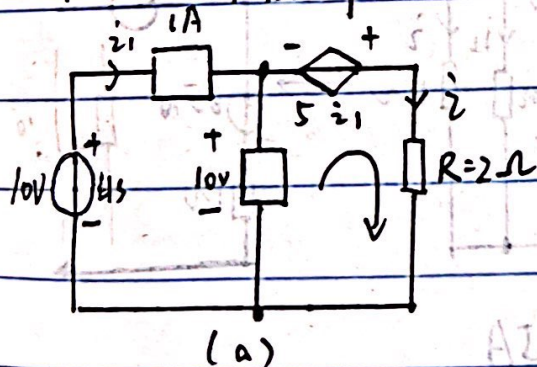 i₁ 1A
- +
5 i₁
i
+
10V us
-
+
10V
-
R=2Ω
(a)